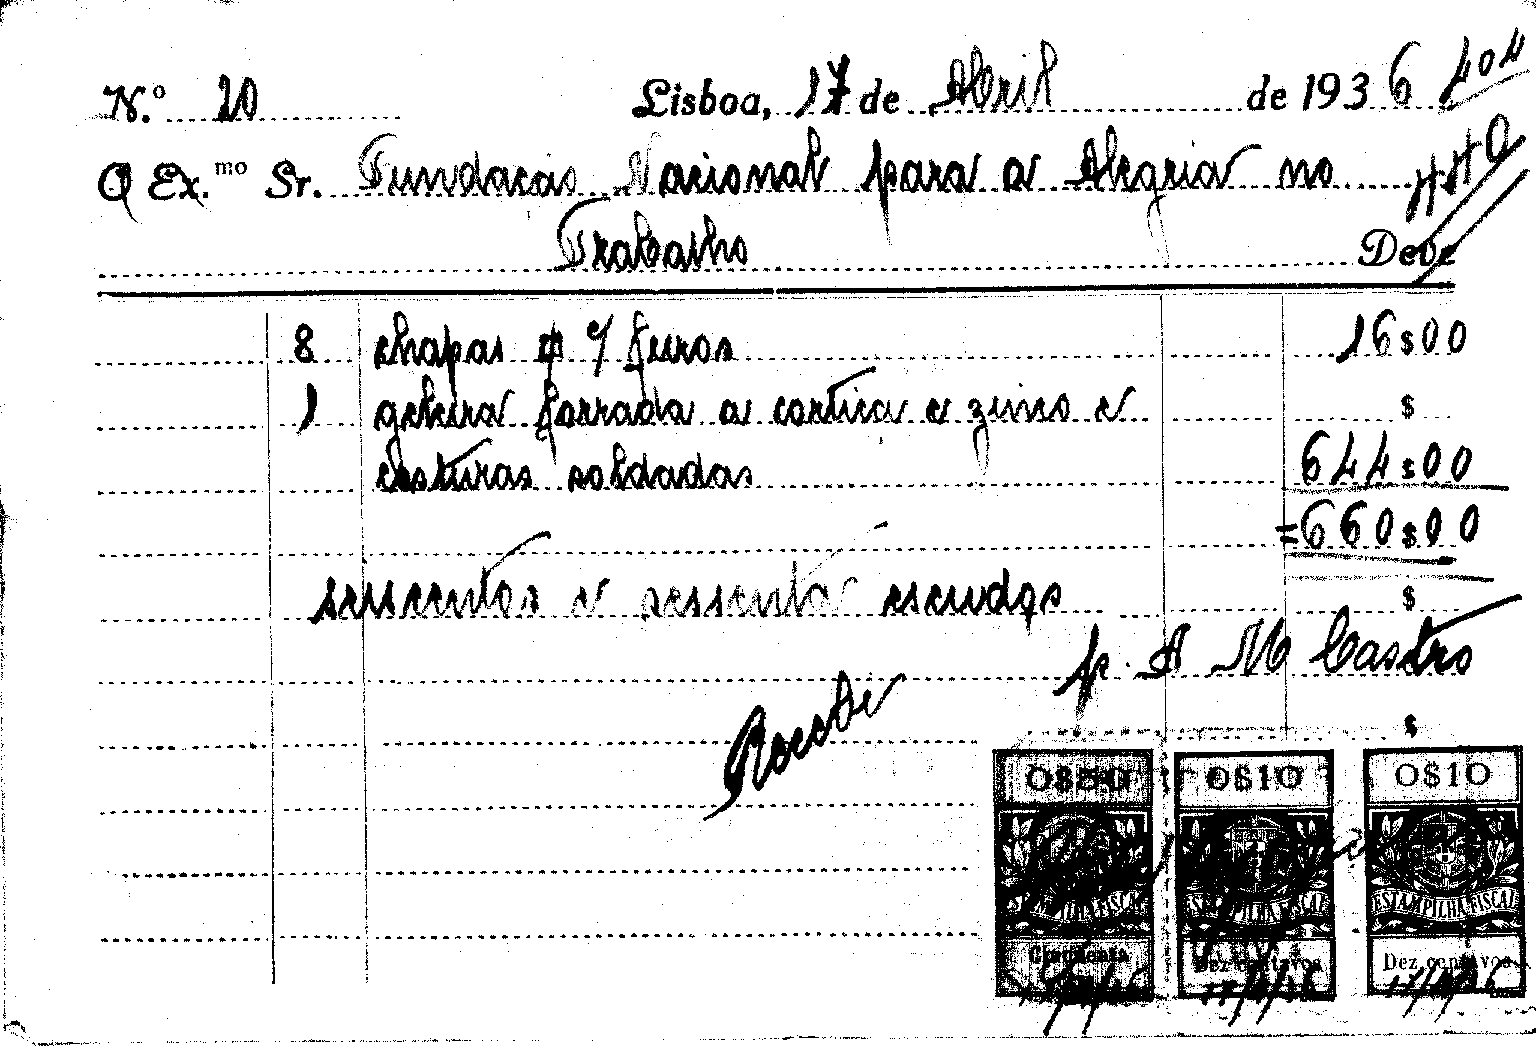 N.º 20 Lisboa, 17 de Abril de 1936
O Ex.mo Sr. Fundação Nacional para a Alegria no
Trabalho Deve
8 chapas p 9 furos 16$00
1 geleira forrada a cortiça e zinco e $
costuras soldadas 644$00
=660$00
seiscentos e sessenta escudos $
p. A M Castro
Recebi $
O$50 O$10 O$10
ESTAMPILHA FISCAL ESTAMPILHA FISCAL ESTAMPILHA FISCAL
Cincoenta Dez centavos Dez centavos